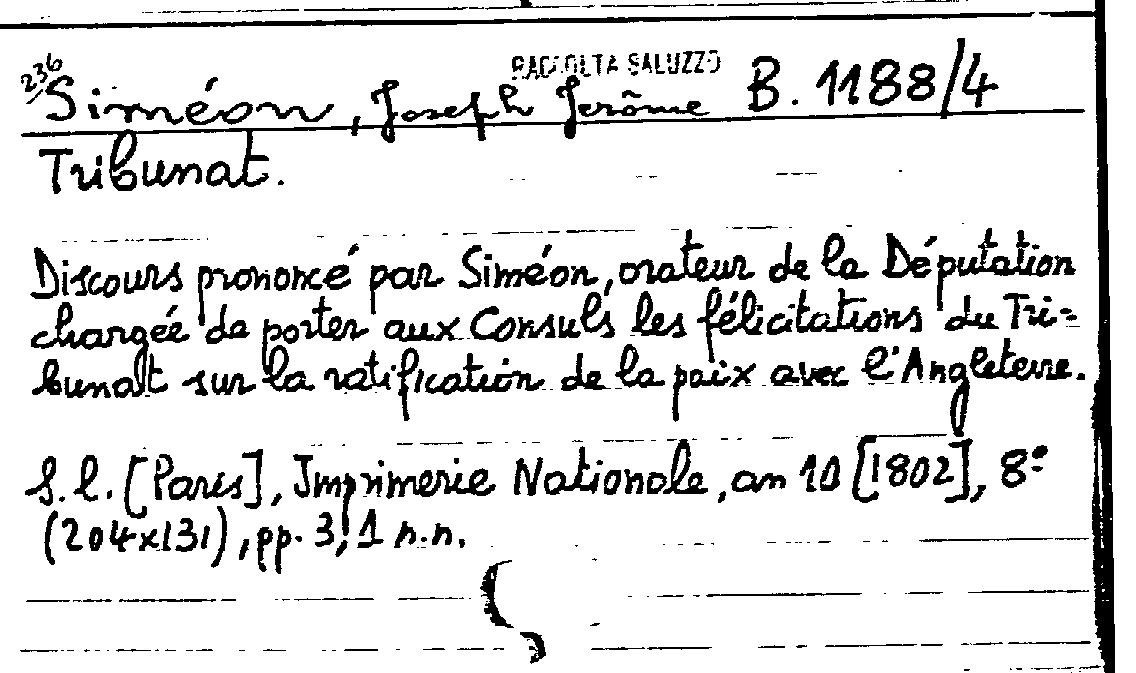 236
RACCOLTA SALUZZO
Siméon, Joseph Jerôme B. 1188/4
Tribunat.
Discours prononcé par Siméon, orateur de la Députation
chargée de porter aux Consuls les félicitations du Tri=
bunalt sur la ratification de la paix avec l'Angleterre.
S.l. [Paris], Imprimerie Nationale, an 10 [1802], 8°
(204x131), pp. 3, 1 n.n.